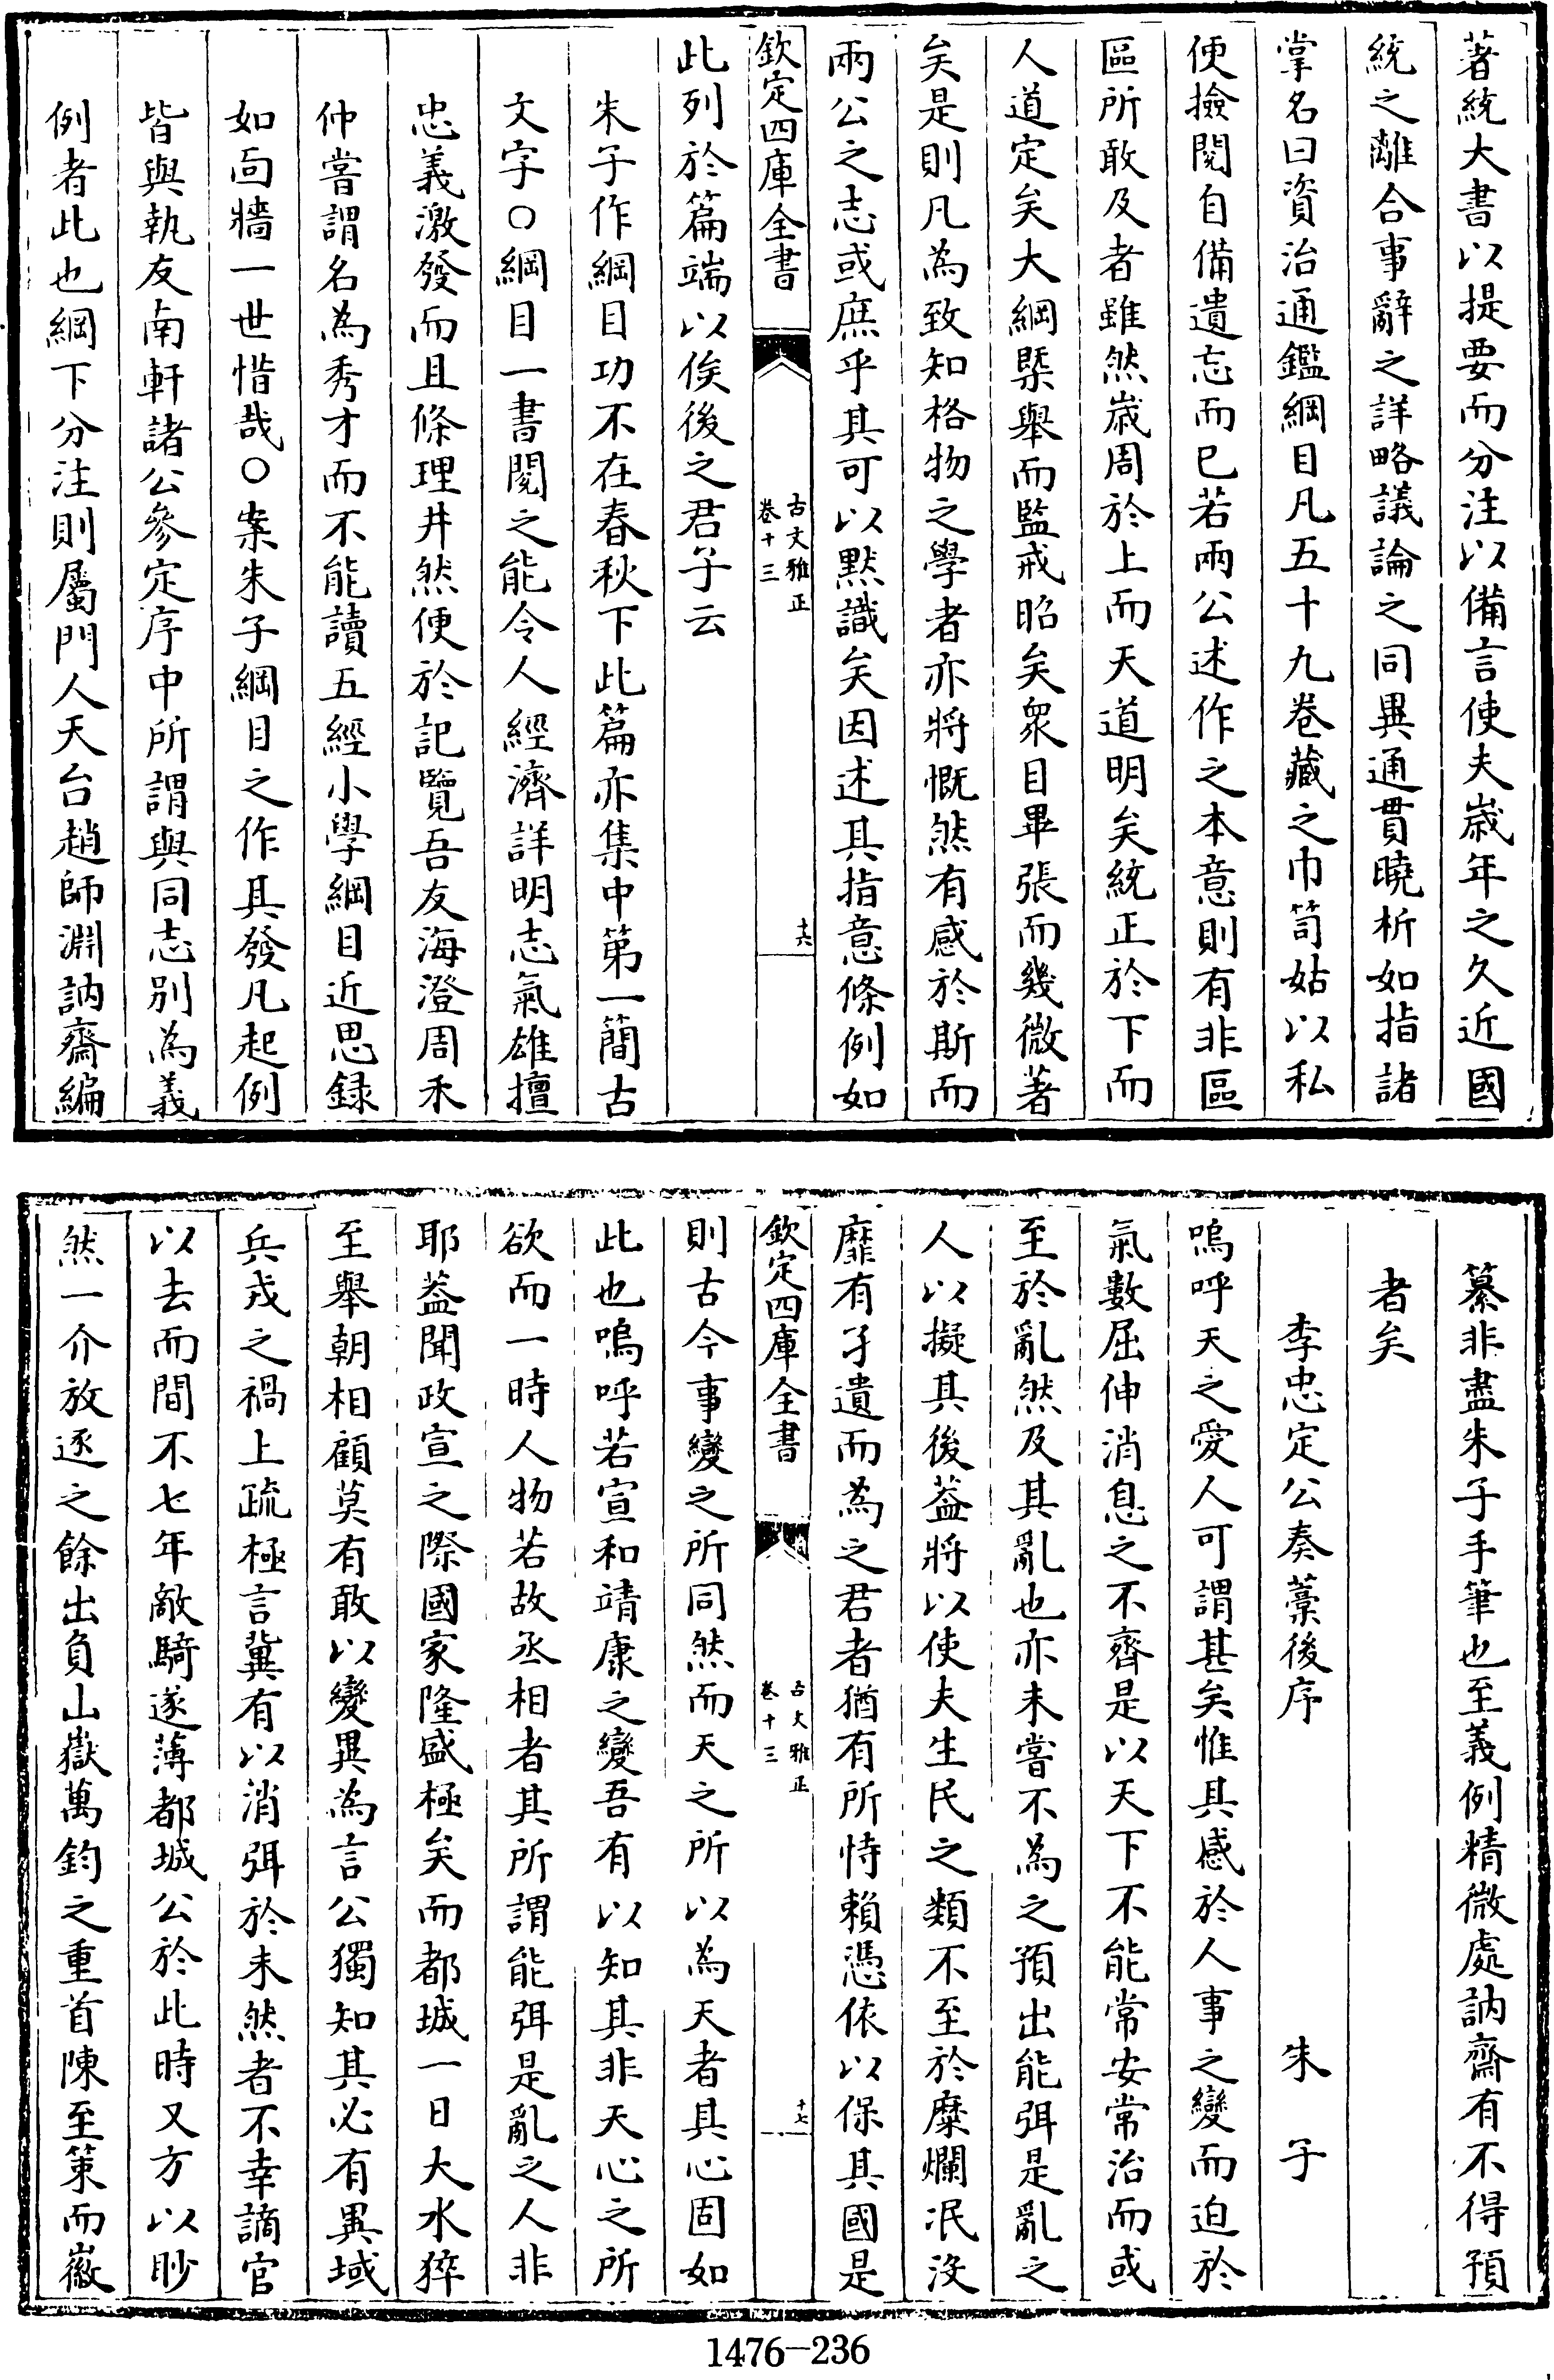 著統大書以提要而分注以備言使夫歳年之久近國
統之離合事辭之詳略議論之同異通貫曉析如指諸
掌名曰資治通鑑綱目凡五十九卷藏之巾笥姑以私
便撿閱自備遺忘而已若兩公述作之本意則有非區
區所敢及者雖然歳周於上而天道明矣統正於下而
人道定矣大綱槩舉而監戒昭矣衆目畢張而幾微著
矣是則凡為致知格物之學者亦將慨然有感於斯而
兩公之志或庶乎其可以默識矣因述其指意條例如
欽定四庫全書
古文雅正
卷十三
十六
此列於篇端以俟後之君子云
朱子作綱目功不在春秋下此篇亦集中第一簡古
文字○綱目一書閱之能令人經濟詳明志氣雄擅
忠義激發而且條理井然便於記覽吾友海澄周禾
仲嘗謂名為秀才而不能讀五經小學綱目近思録
如面牆一世惜哉○案朱子綱目之作其發凡起例
皆與執友南軒諸公參定序中所謂與同志別為義
例者此也綱下分注則屬門人天台趙師淵訥齋編
纂非盡朱子手筆也至義例精微處訥齋有不得預
者矣
李忠定公奏藁後序 朱子
嗚呼天之愛人可謂甚矣惟其感於人事之變而迫於
氣數屈伸消息之不齊是以天下不能常安常治而或
至於亂然及其亂也亦未嘗不為之預出能弭是亂之
人以擬其後葢將以使夫生民之類不至於糜爛泯沒
靡有孑遺而為之君者猶有所恃賴憑依以保其國是
欽定四庫全書
古文雅正
卷十三
十七
則古今事變之所同然而天之所以為天者其心固如
此也嗚呼若宣和靖康之變吾有以知其非天心之所
欲而一時人物若故丞相者其所謂能弭是亂之人非
耶葢聞政宣之際國家隆盛極矣而都城一日大水猝
至舉朝相顧莫有敢以變異為言公獨知其必有異域
兵戎之禍上疏極言冀有以消弭於未然者不幸謫官
以去而間不七年敵騎遂薄都城公於此時又方以眇
然一介放逐之餘出負山嶽萬鈞之重首陳至策而徽
1476-236